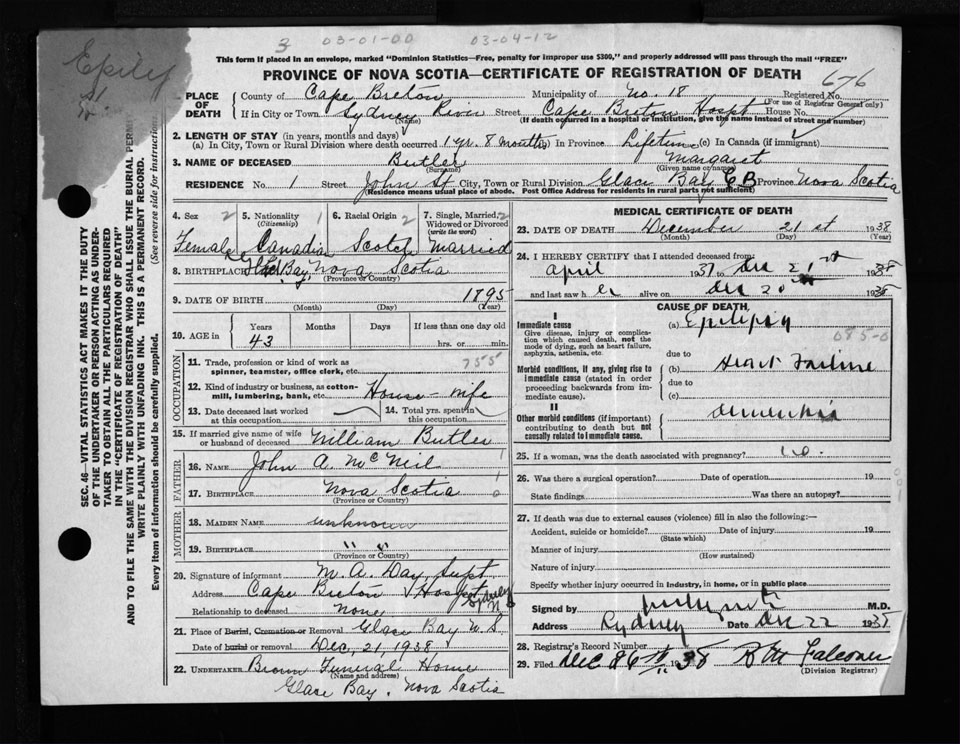 Epily
3 03-01-00 03-04-12
This form if placed in an envelope, marked "Dominion Statistics—Free, penalty for improper use $300," and properly addressed will pass through the mail "FREE"
PROVINCE OF NOVA SCOTIA—CERTIFICATE OF REGISTRATION OF DEATH
676
PLACE OF DEATH
County of Cape Breton Municipality of No. 18 Registered No.
(For use of Registrar General only)
If in City or Town Sydney River Street Cape Breton Hospt House No.
(Name) (If death occurred in a hospital or institution, give the name instead of street and number)
2. LENGTH OF STAY (in years, months and days)
(a) In City, Town or Rural Division where death occurred 1 yr. 8 months (b) In Province Lifetime (c) In Canada (if immigrant)
3. NAME OF DECEASED Butler Margaret
(Surname) (Given name or names)
RESIDENCE No. 1 Street John St City, Town or Rural Division Glace Bay CB Province Nova Scotia
(Residence means usual place of abode. Post Office Address for residents in rural parts not sufficient)
4. Sex 2 Female
5. Nationality (Citizenship) 1 Canadian
6. Racial Origin 2 Scotch
7. Single, Married, Widowed or Divorced (write the word) 2 Married
8. BIRTHPLACE Glace Bay, Nova Scotia
(Province or Country)
9. DATE OF BIRTH 1895
(Month) (Day) (Year)
10. AGE in Years Months Days If less than one day old
43 hrs. or min.
OCCUPATION
11. Trade, profession or kind of work as spinner, teamster, office clerk, etc. 755
12. Kind of industry or business, as cotton-mill, lumbering, bank, etc. House-wife
13. Date deceased last worked at this occupation
14. Total yrs. spent in this occupation
15. If married give name of wife or husband of deceased William Butler
FATHER
16. NAME John A. McNeil 1
17. BIRTHPLACE Nova Scotia 0
(Province or Country)
MOTHER
18. MAIDEN NAME unknown
19. BIRTHPLACE " "
(Province or Country)
20. Signature of informant M. A. Day, Supt
Address Cape Breton Hospt Sydney N S
Relationship to deceased None
21. Place of Burial, Cremation or Removal Glace Bay N.S.
Date of burial or removal Dec, 21, 1938
22. UNDERTAKER Brown Funeral Home
(Name and address)
Glace Bay, Nova Scotia
MEDICAL CERTIFICATE OF DEATH
23. DATE OF DEATH December 21st 1938
(Month) (Day) (Year)
24. I HEREBY CERTIFY that I attended deceased from:
April 1937 to Dec 21st 1938
and last saw her alive on Dec 20th 1938
CAUSE OF DEATH
I
Immediate cause
Give disease, injury or complication which caused death, not the mode of dying, such as heart failure, asphyxia, asthenia, etc.
(a) Epilepsy
085-0
due to
Morbid conditions, if any, giving rise to immediate cause (stated in order proceeding backwards from immediate cause).
(b) Heart Failure
due to
(c)
II
Other morbid conditions (if important) contributing to death but not causally related to immediate cause.
Dementia
25. If a woman, was the death associated with pregnancy? no.
26. Was there a surgical operation? Date of operation 19
State findings Was there an autopsy?
27. If death was due to external causes (violence) fill in also the following:—
Accident, suicide or homicide? Date of injury 19
(State which)
Manner of injury
(How sustained)
Nature of injury
Specify whether injury occurred in industry, in home, or in public place
Signed by M.D.
Address Sydney Date Dec 22 1938
28. Registrar's Record Number
29. Filed Dec 26th 1938 Falconer
(Division Registrar)
SEC. 46—VITAL STATISTICS ACT MAKES IT THE DUTY
OF THE UNDERTAKER OR PERSON ACTING AS UNDER-
TAKER TO OBTAIN ALL THE PARTICULARS REQUIRED
IN THE "CERTIFICATE OF REGISTRATION OF DEATH"
AND TO FILE THE SAME WITH THE DIVISION REGISTRAR WHO SHALL ISSUE THE BURIAL PERMIT
WRITE PLAINLY WITH UNFADING INK. THIS IS A PERMANENT RECORD.
Every item of information should be carefully supplied. (See reverse side for instructions)